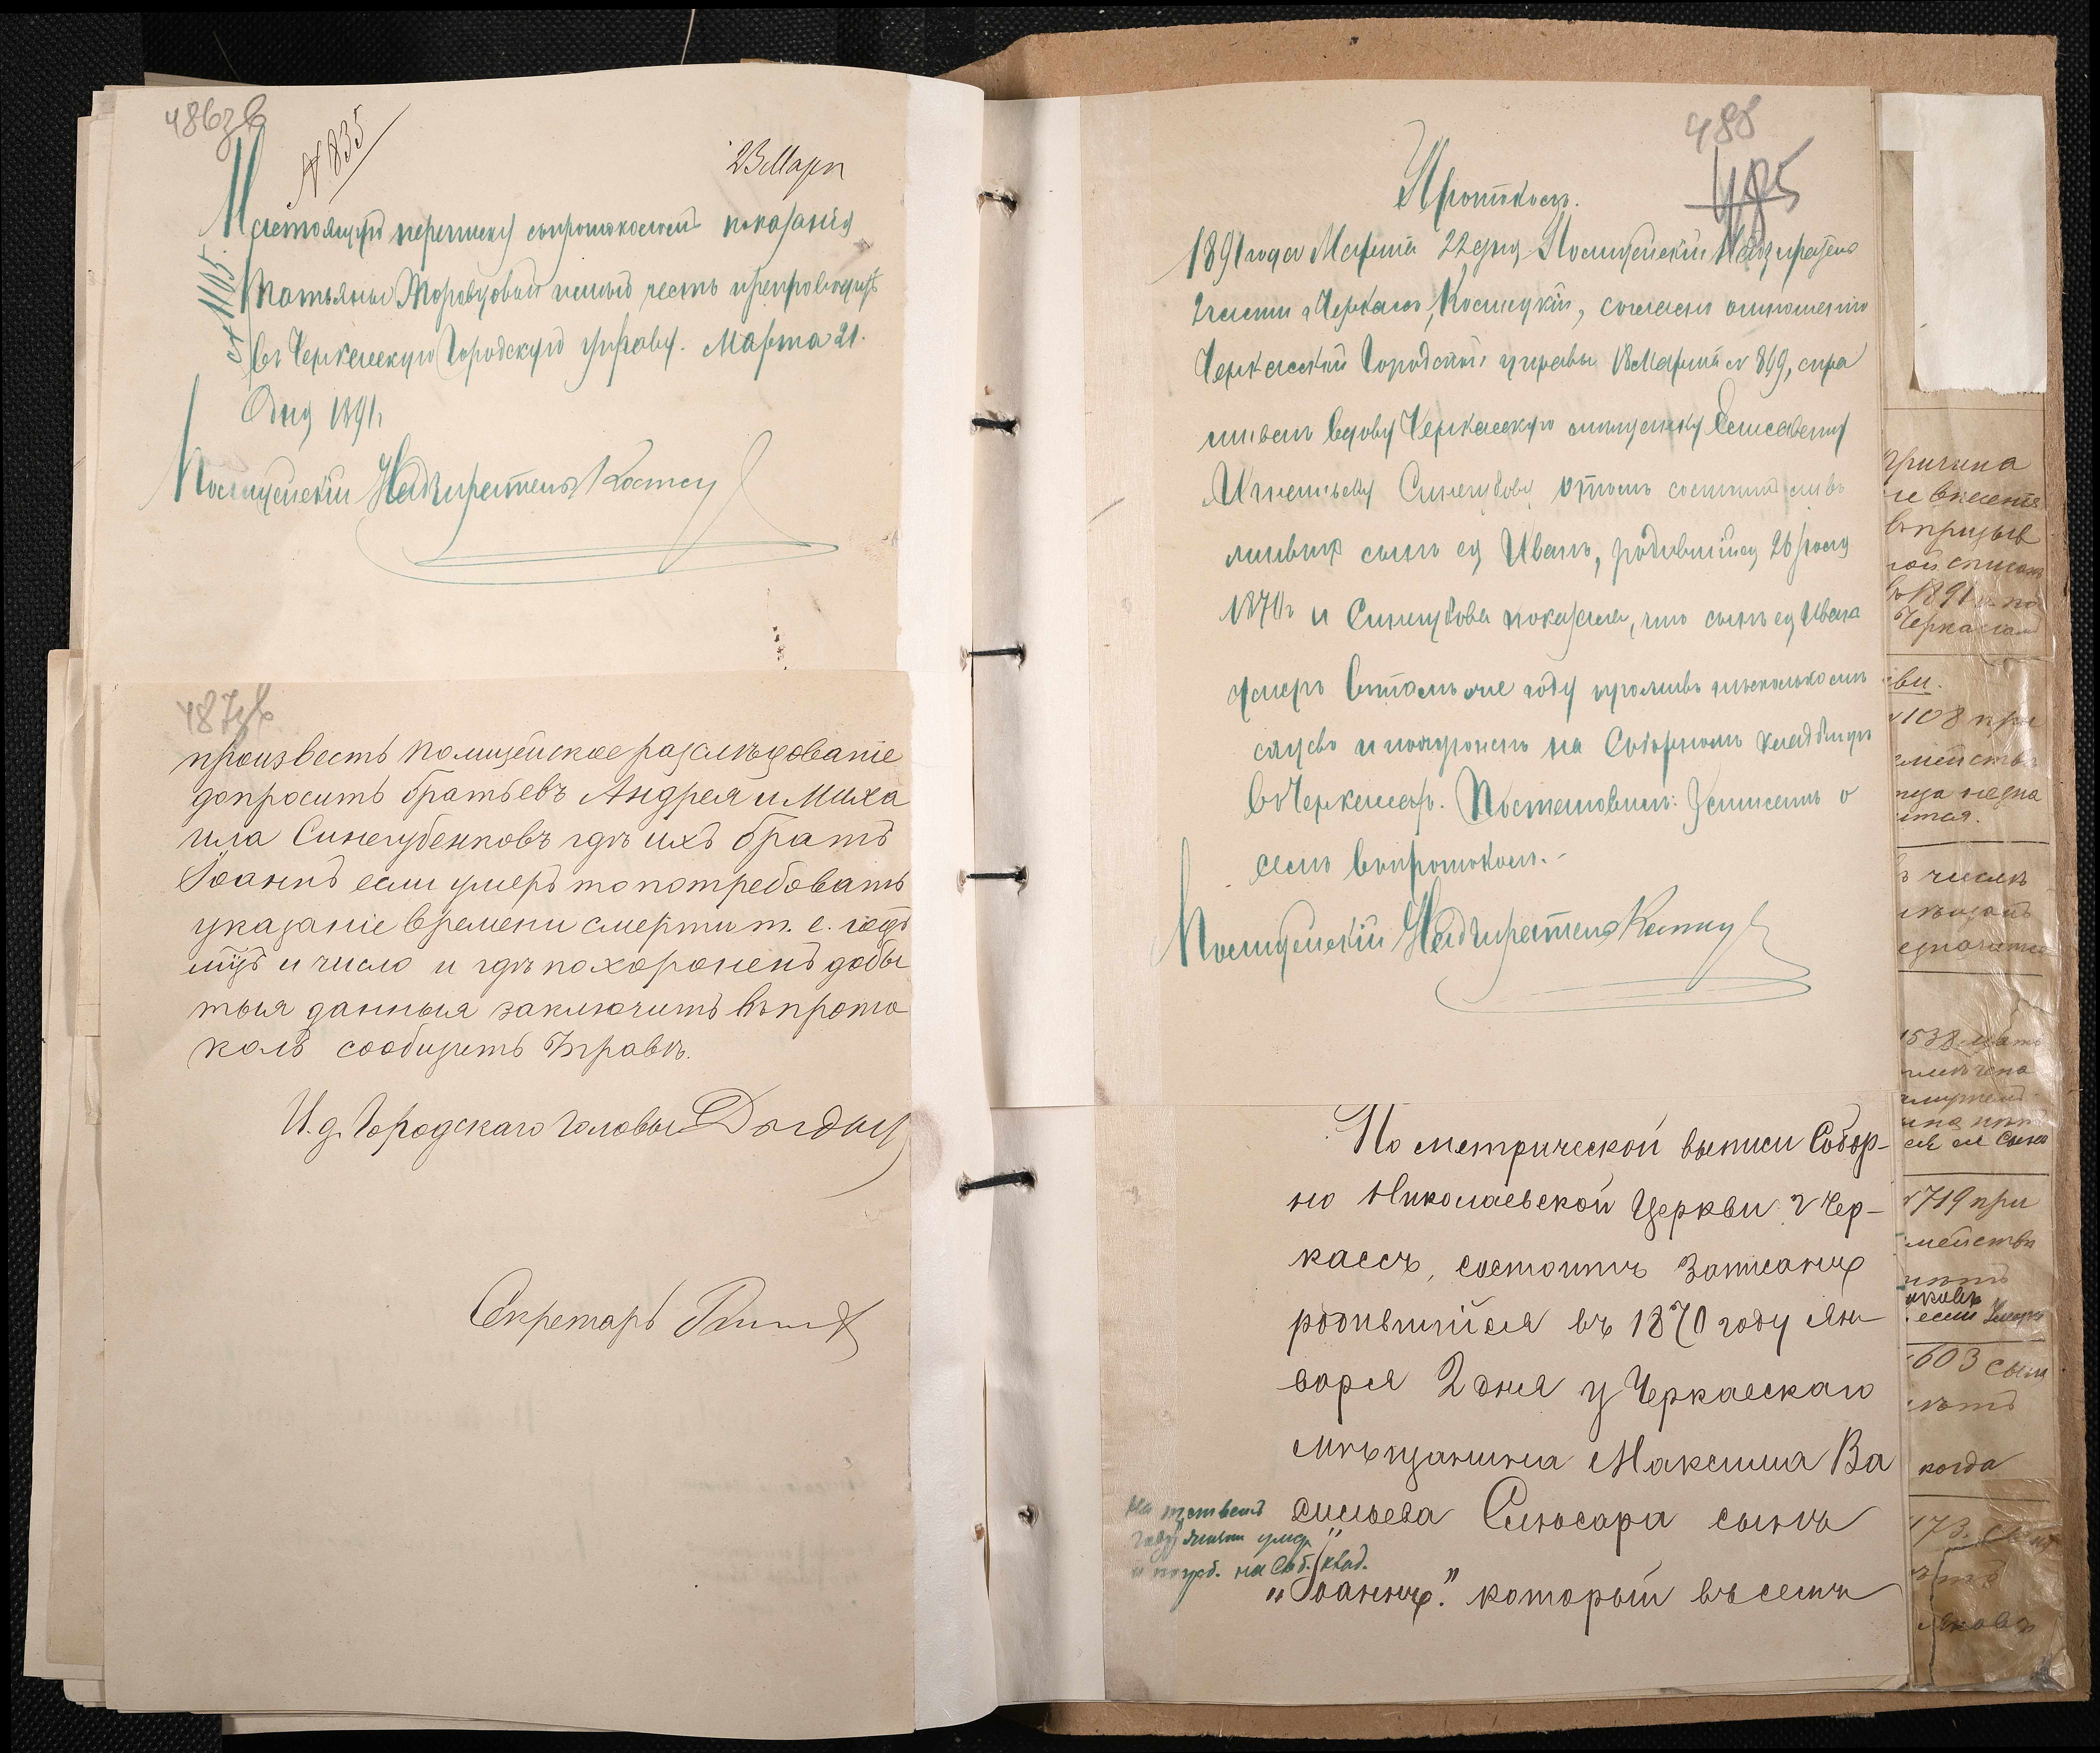 486зв
№ 835
23 Март
Настоящую переписку съ протоколомъ показанія
Татьяны Моровцовой имѣю честь препроводить
въ Черкасскую Городскую управу. Марта 21.
Дня 1891 г.
№ 1105.
Полицейскій Надзиратель
487зв
произвесть полицейское разслѣдованіе
допросить братьевъ Андрея и Миха
ила Синегубенковъ гдѣ ихъ братъ
Іоаннъ если умеръ то потребовать
указаніе времени смерти т. е. годъ
мцъ и число и гдѣ похороненъ добы
тыя данныя заключить въ прото
колъ сообщить Управѣ.
И. д. Городскаго Головы
Секретарь
488
485
Протоколъ.
1891 года Марта 22 дня Полицейскій Надзиратель
2 части г. Черкасъ, Косицкій, согласно отношенію
Черкасской Городской управы 18 Марта № 869, спра
шивалъ вдову Черкасскую мѣщанку Елисавету
Игнатьеву Синегубову о томъ состоитъ ли въ
живыхъ сынъ ея Иванъ, родившійся 26 Іюля
1870 г. и Синегубова показала, что сынъ ея Иванъ
умеръ въ томъ же году проживъ нѣсколько
и похороненъ на Соборномъ кладбищѣ
въ Черкассахъ. Постановилъ: Записать о
семъ въ протоколъ.
Полицейскій Надзиратель
По метрической выписи Собор-
но Николаевской Церкви г Чер-
кассъ, состоитъ записанъ
родившійся въ 1870 году Ян
варя 2 дня у Черкасскаго
мѣщанина Максима Ва
сильева Слюсаря сынъ
„Іоаннъ." который въ семъ
На третьемъ
году жизни умер.
и погреб. на Соб. клад.
Причина
не внесенія
въ призыв
ной списокъ
въ 1891 г. по
Черкассамъ
№ 108 при
1538
719 при
603 сына
когда
173.